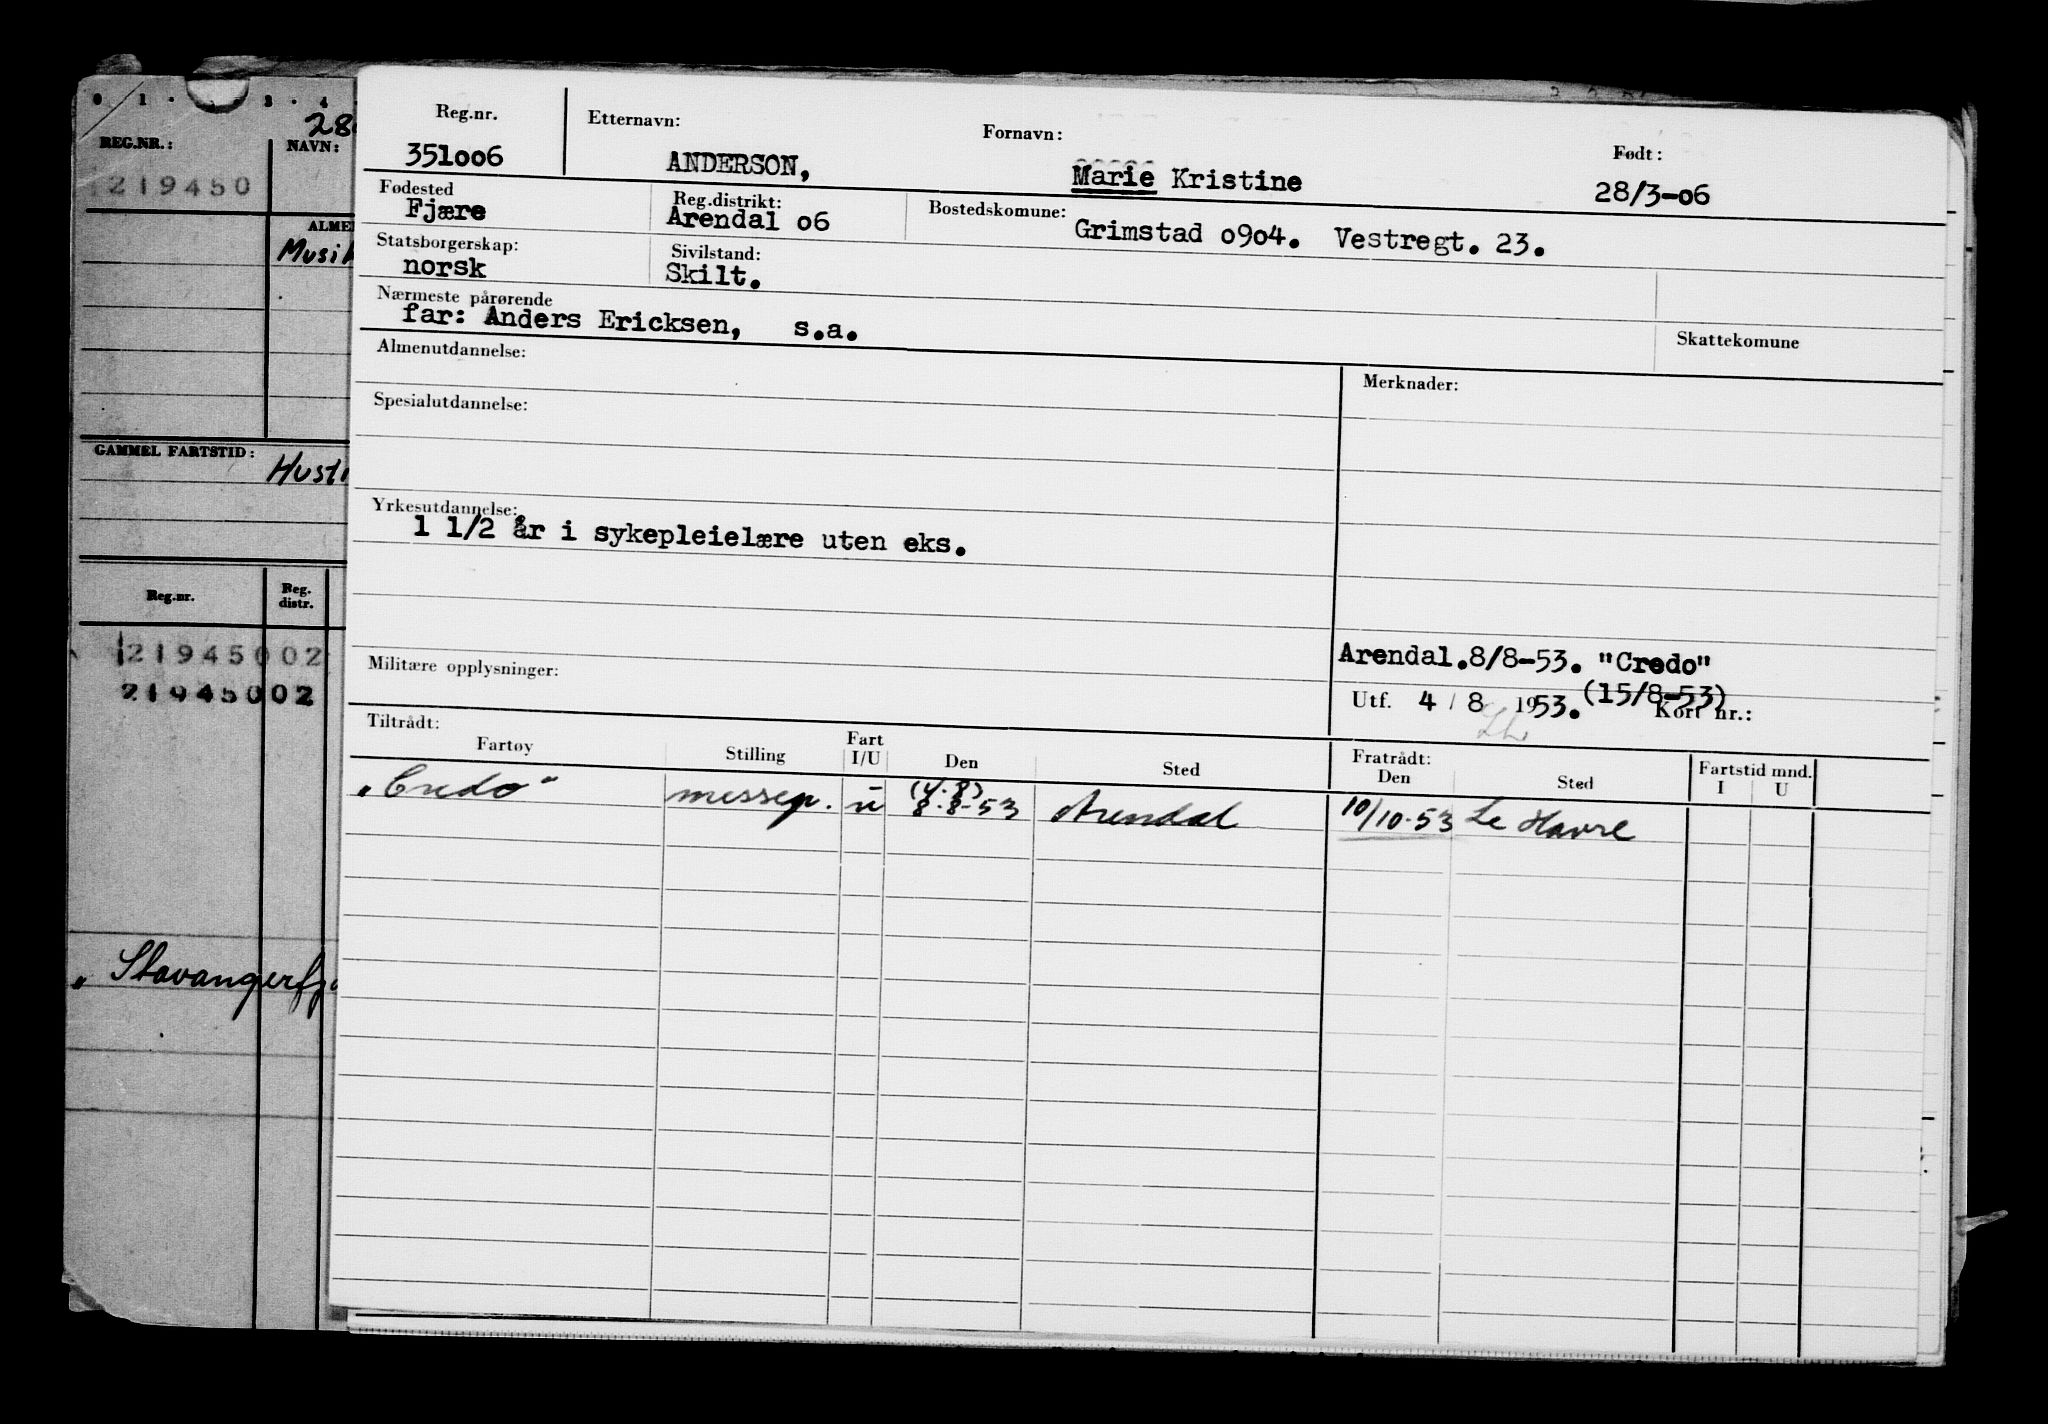 0 1 . 3 . 4
28
REG.NR.: NAVN:
219450
ALME
Musik
GAMMEL FARTSTID:
Reg.nr. Reg. distr.
21945002
21945002
"Stavangerfj
Reg.nr. Etternavn: Fornavn: Født:
351006 ANDERSON, Marie Kristine 28/3-06
Fødested Reg.distrikt: Bostedskomune:
Fjære Arendal 06 Grimstad 0904. Vestregt. 23.
Statsborgerskap: Sivilstand:
norsk Skilt.
Nærmeste pårørende Skattekomune
far: Anders Ericksen, s.a.
Almenutdannelse: Merknader:
Spesialutdannelse:
Yrkesutdannelse:
1 1/2 år i sykepleielære uten eks.
Militære opplysninger: Arendal.8/8-53. "Credo"
(15/8-53)
Utf. 4 / 8 1953. Kort nr.:
Tiltrådt: Fratrådt:
Fartøy Stilling Fart I/U Den Sted Den Sted Fartstid mnd. I U
(4.8)
"Credo" messep. u 8.8-53 Arendal 10/10-53 Le Havre